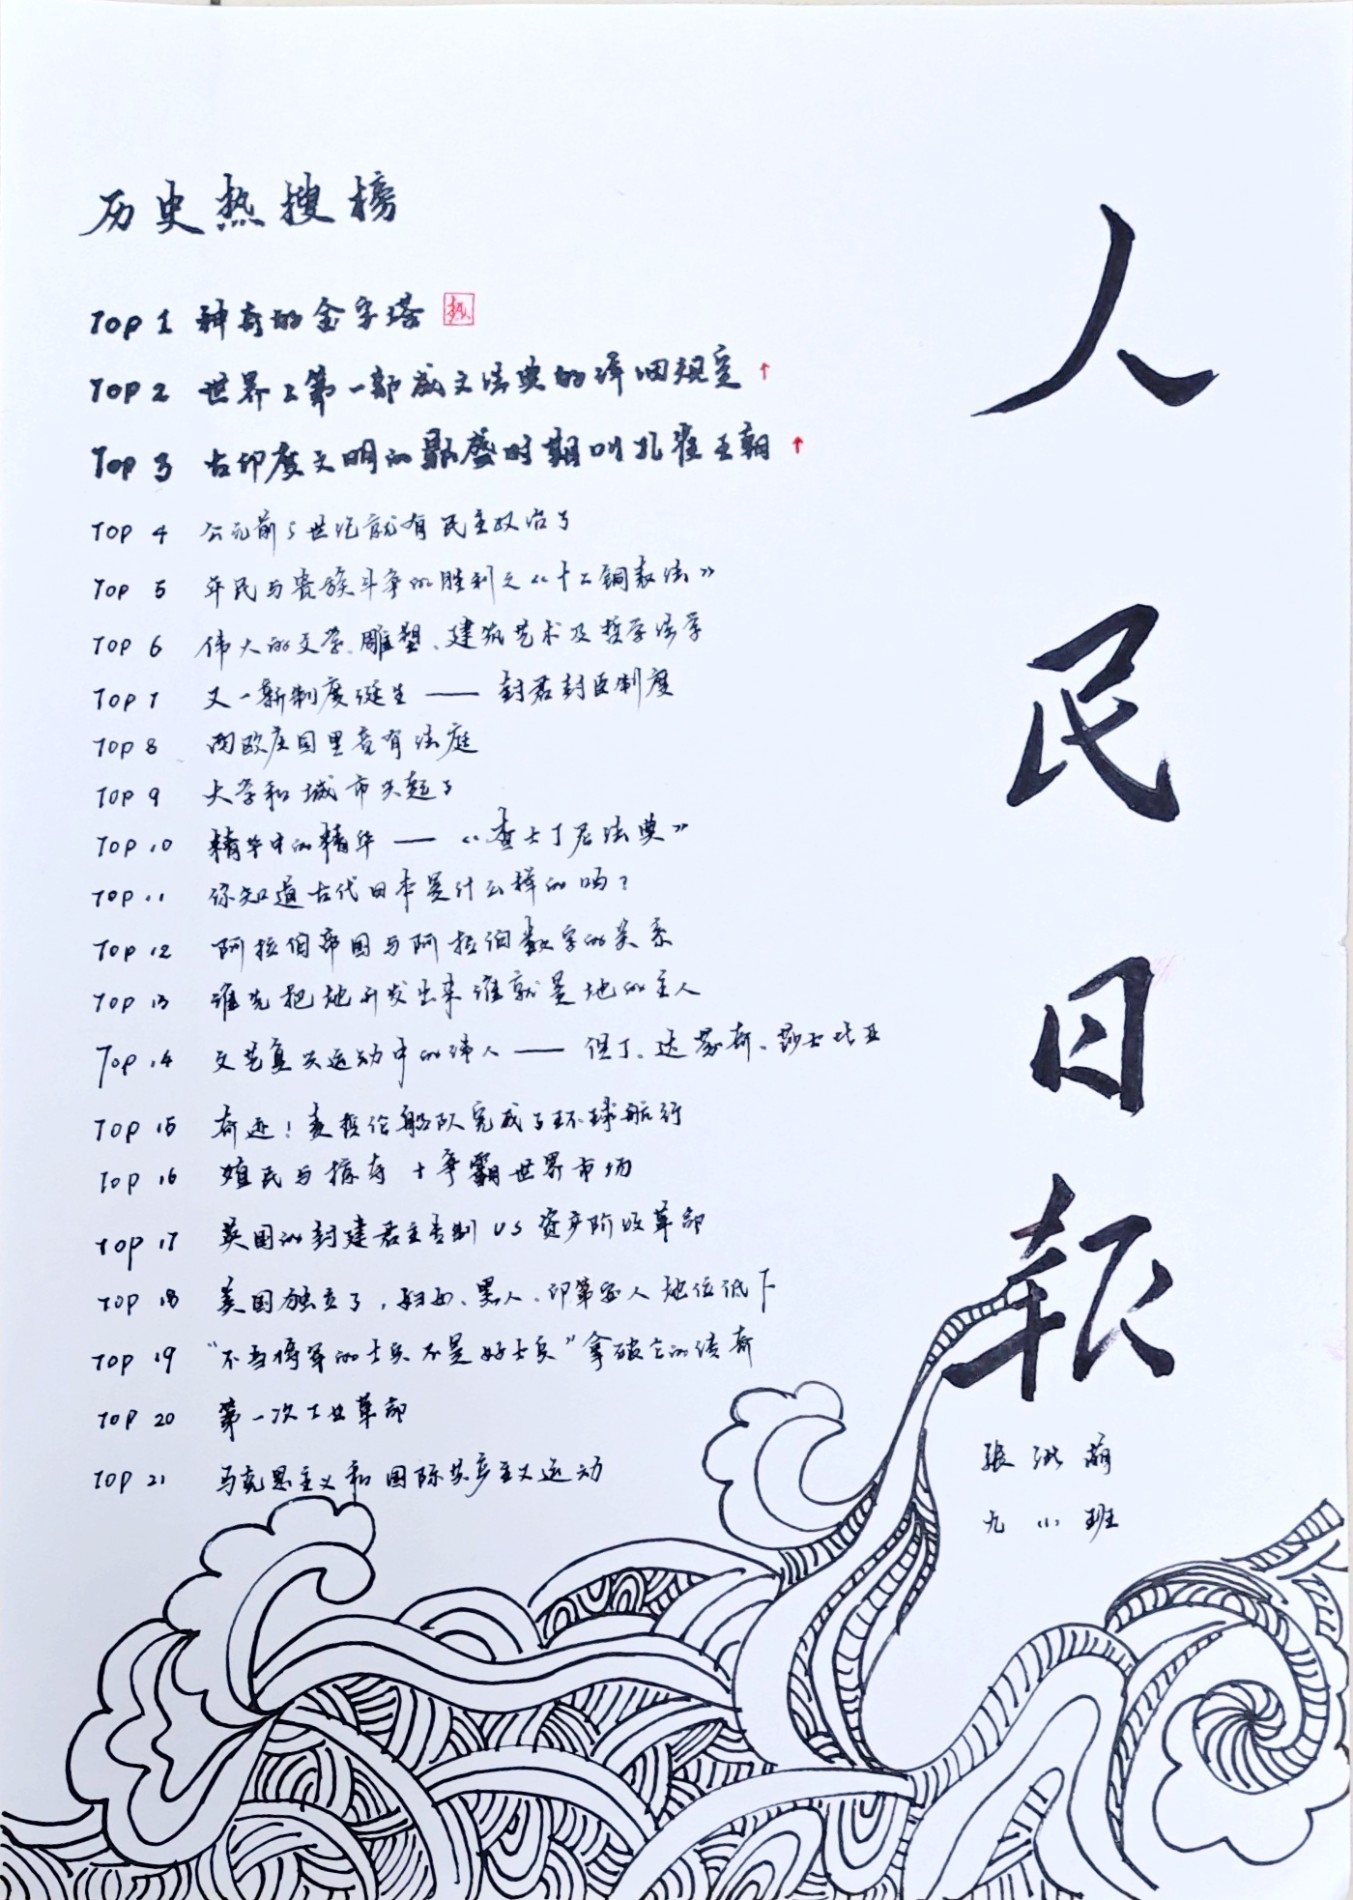 历史热搜榜
Top 1 神奇的金字塔 热
Top 2 世界上第一部成文法典的详细规定 ↑
Top 3 古印度文明的鼎盛时期叫孔雀王朝 ↑
Top 4 公元前5世纪就有民主政治了
Top 5 平民与贵族斗争的胜利之《十二铜表法》
Top 6 伟大的文学、雕塑、建筑艺术及哲学法学
Top 7 又一新制度诞生——封君封臣制度
Top 8 西欧庄园里竟有法庭
Top 9 大学和城市兴起了
Top 10 精华中的精华——《查士丁尼法典》
Top 11 你知道古代日本是什么样的吗？
Top 12 阿拉伯帝国与阿拉伯数字的关系
Top 13 谁先把地开发出来谁就是地的主人
Top 14 文艺复兴运动中的伟人——但丁、达芬奇、莎士比亚
Top 15 奇迹！麦哲伦船队完成了环球航行
Top 16 殖民与掠夺+争霸世界市场
Top 17 英国的封建君主专制 VS 资产阶级革命
Top 18 美国独立了，妇女、黑人、印第安人地位低下
Top 19 “不当将军的士兵不是好士兵”拿破仑的传奇
Top 20 第一次工业革命
Top 21 马克思主义和国际共产主义运动
人民日报
张
九（1）班